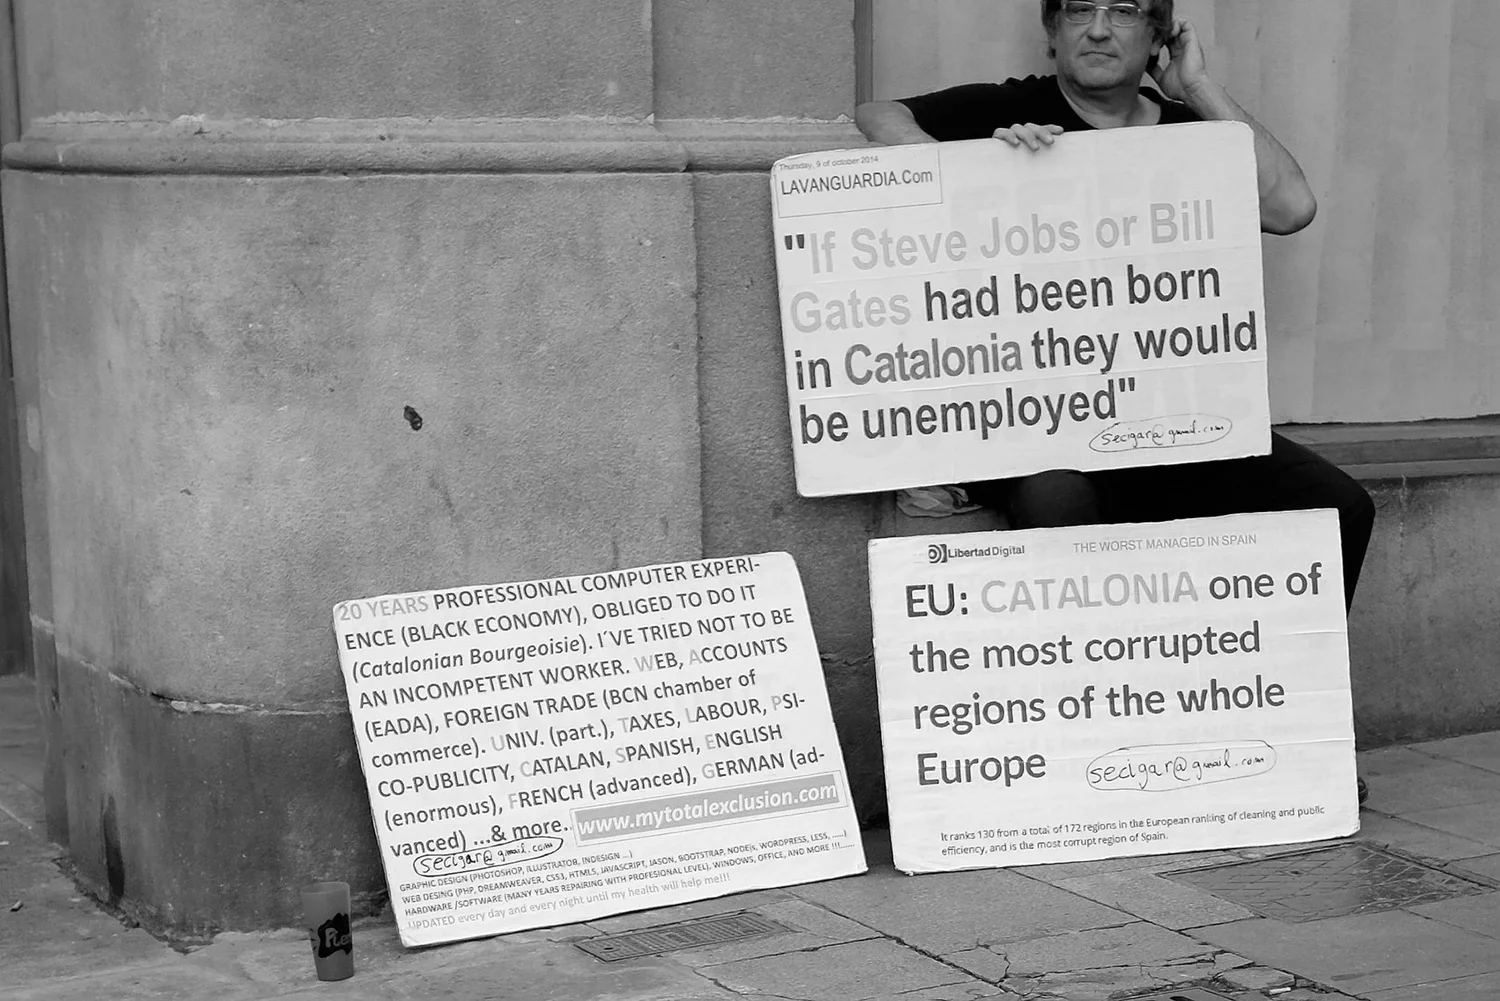 Thursday, 9 of october 2014
LAVANGUARDIA.Com
"If Steve Jobs or Bill
Gates had been born
in Catalonia they would
be unemployed"
secigar@gmail.com
LibertadDigital THE WORST MANAGED IN SPAIN
EU: CATALONIA one of
the most corrupted
regions of the whole
Europe secigar@gmail.com
It ranks 130 from a total of 172 regions in the European ranking of cleaning and public
efficiency, and is the most corrupt region of Spain.
20 YEARS PROFESSIONAL COMPUTER EXPERI-
ENCE (BLACK ECONOMY), OBLIGED TO DO IT
(Catalonian Bourgeoisie). I´VE TRIED NOT TO BE
AN INCOMPETENT WORKER. WEB, ACCOUNTS
(EADA), FOREIGN TRADE (BCN chamber of
commerce). UNIV. (part.), TAXES, LABOUR, PSI-
CO-PUBLICITY, CATALAN, SPANISH, ENGLISH
(enormous), FRENCH (advanced), GERMAN (ad-
vanced) ...& more.. www.mytotalexclusion.com
secigar@gmail.com
GRAPHIC DESIGN (PHOTOSHOP, ILLUSTRATOR, INDESIGN ...)
WEB DESING (PHP, DREAMWEAVER, CSS3, HTML5, JAVASCRIPT, JASON, BOOTSTRAP, NODEjs, WORDPRESS, LESS, .....)
HARDWARE /SOFTWARE (MANY YEARS REPAIRING WITH PROFESIONAL LEVEL), WINDOWS, OFFICE, AND MORE !!!.......
UPDATED every day and every night until my health will help me!!!